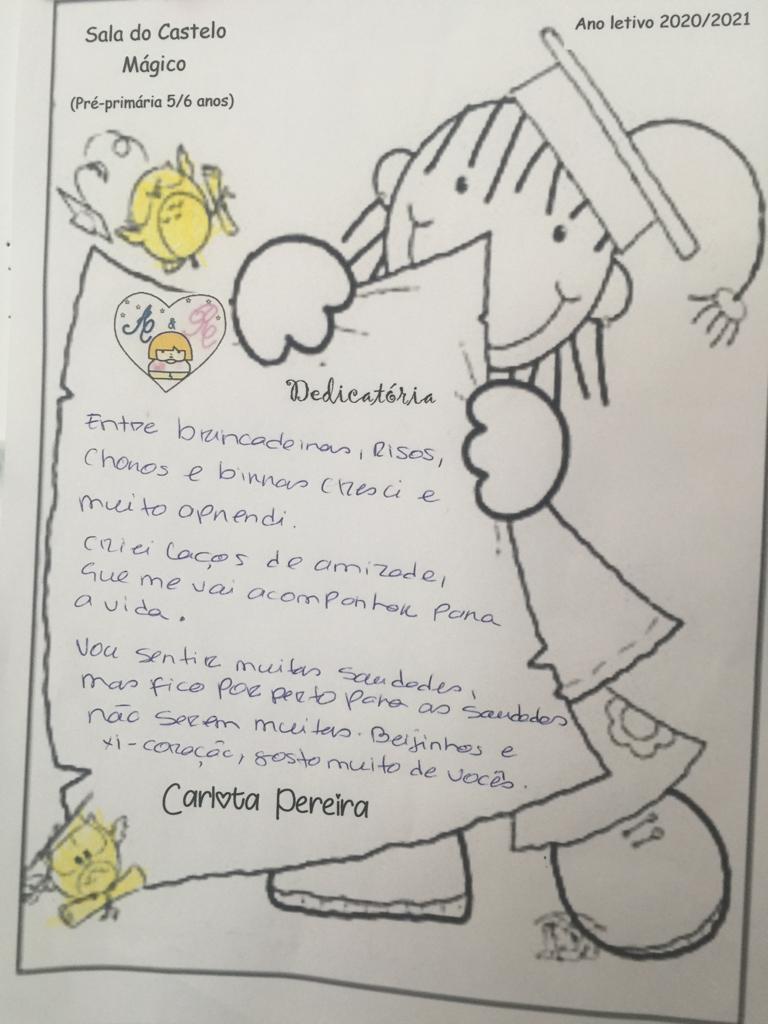 Sala do Castelo
Mágico
(Pré-primária 5/6 anos)
Ano letivo 2020/2021
A & R
Dedicatória
Entre brincadeiras, risos,
choros e birras cresci e
muito aprendi.
Criei laços de amizade,
que me vai acompanhar para
a vida.
Vou sentir muitas saudades,
mas fico por perto para as saudades
não serem muitas. Beijinhos e
xi-coração, gosto muito de vocês.
Carlota Pereira